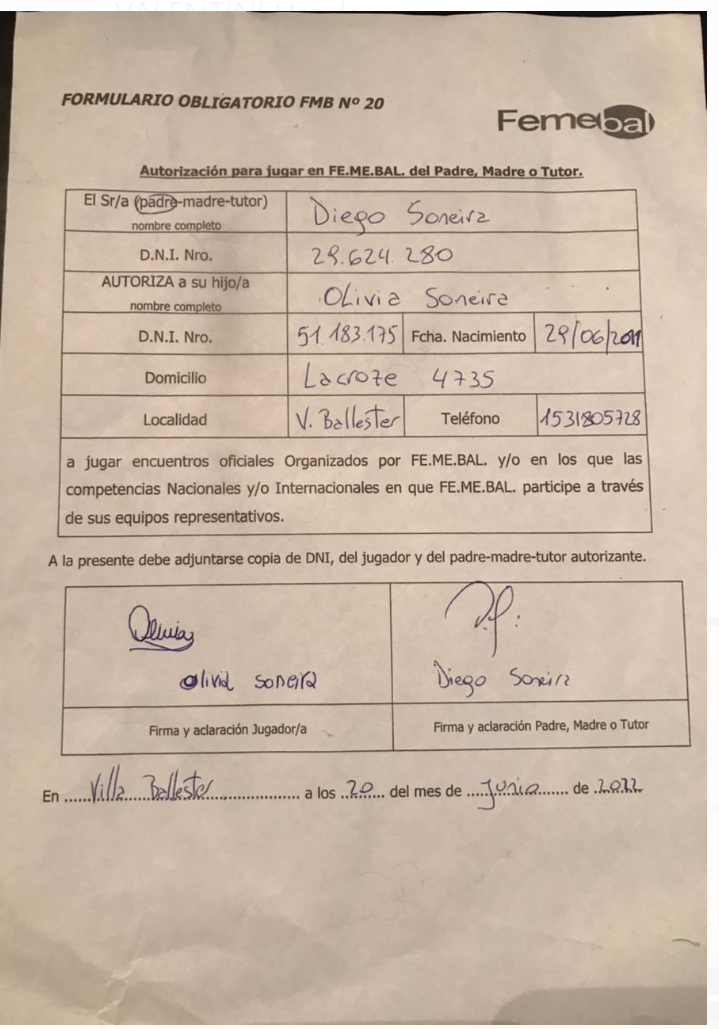 FORMULARIO OBLIGATORIO FMB Nº 20
Femebal
Autorización para jugar en FE.ME.BAL. del Padre, Madre o Tutor.
El Sr/a (padre-madre-tutor)
nombre completo
Diego Soneira
D.N.I. Nro.
29.624.280
AUTORIZA a su hijo/a
nombre completo
Olivia Soneira
D.N.I. Nro.
51.183.175
Fcha. Nacimiento
29/06/2011
Domicilio
Lacroze 4735
Localidad
V. Ballester
Teléfono
1531805728
a jugar encuentros oficiales Organizados por FE.ME.BAL. y/o en los que las
competencias Nacionales y/o Internacionales en que FE.ME.BAL. participe a través
de sus equipos representativos.
A la presente debe adjuntarse copia de DNI, del jugador y del padre-madre-tutor autorizante.
Olivia
olivia soneira
Diego Soneira
Firma y aclaración Jugador/a
Firma y aclaración Padre, Madre o Tutor
En ......Villa Ballester.................... a los ..20... del mes de .....Junio....... de .2022